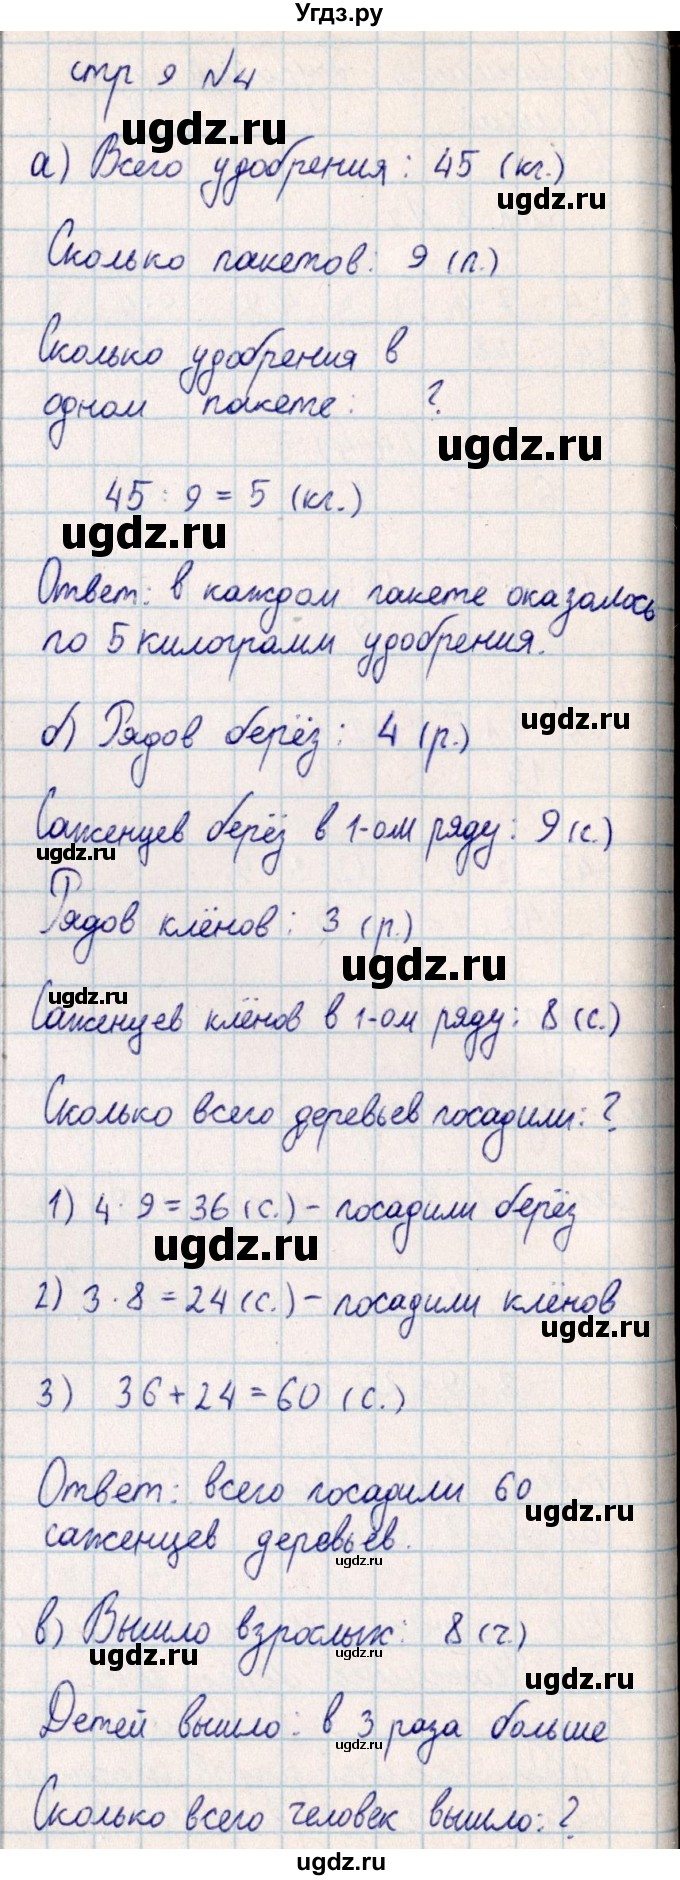 Угдз.ру
стр 9 №4
ugdz.ru
а) Всего удобрения: 45 (кг.)
ugdz.ru
Сколько пакетов: 9 (п.)
Сколько удобрения в
одном пакете: ?
ugdz.ru
45 : 9 = 5 (кг.)
ugdz.ru
Ответ: в каждом пакете оказалось
по 5 килограмм удобрения.
ugdz.ru
б) Рядов берёз: 4 (р.)
Саженцев берёз в 1-ом ряду: 9 (с.)
ugdz.ru
Рядов клёнов: 3 (р.)
ugdz.ru
ugdz.ru
Саженцев клёнов в 1-ом ряду: 8 (с.)
Сколько всего деревьев посадили: ?
1) 4 · 9 = 36 (с.) – посадили берёз
ugdz.ru
2) 3 · 8 = 24 (с.) – посадили клёнов
ugdz.ru
3) 36 + 24 = 60 (с.)
Ответ: всего посадили 60
ugdz.ru
саженцев деревьев.
ugdz.ru
в) Вышло взрослых: 8 (ч.)
ugdz.ru
ugdz.ru
ugdz.ru
Детей вышло: в 3 раза больше
ugdz.ru
Сколько всего человек вышло: ?
ugdz.ru